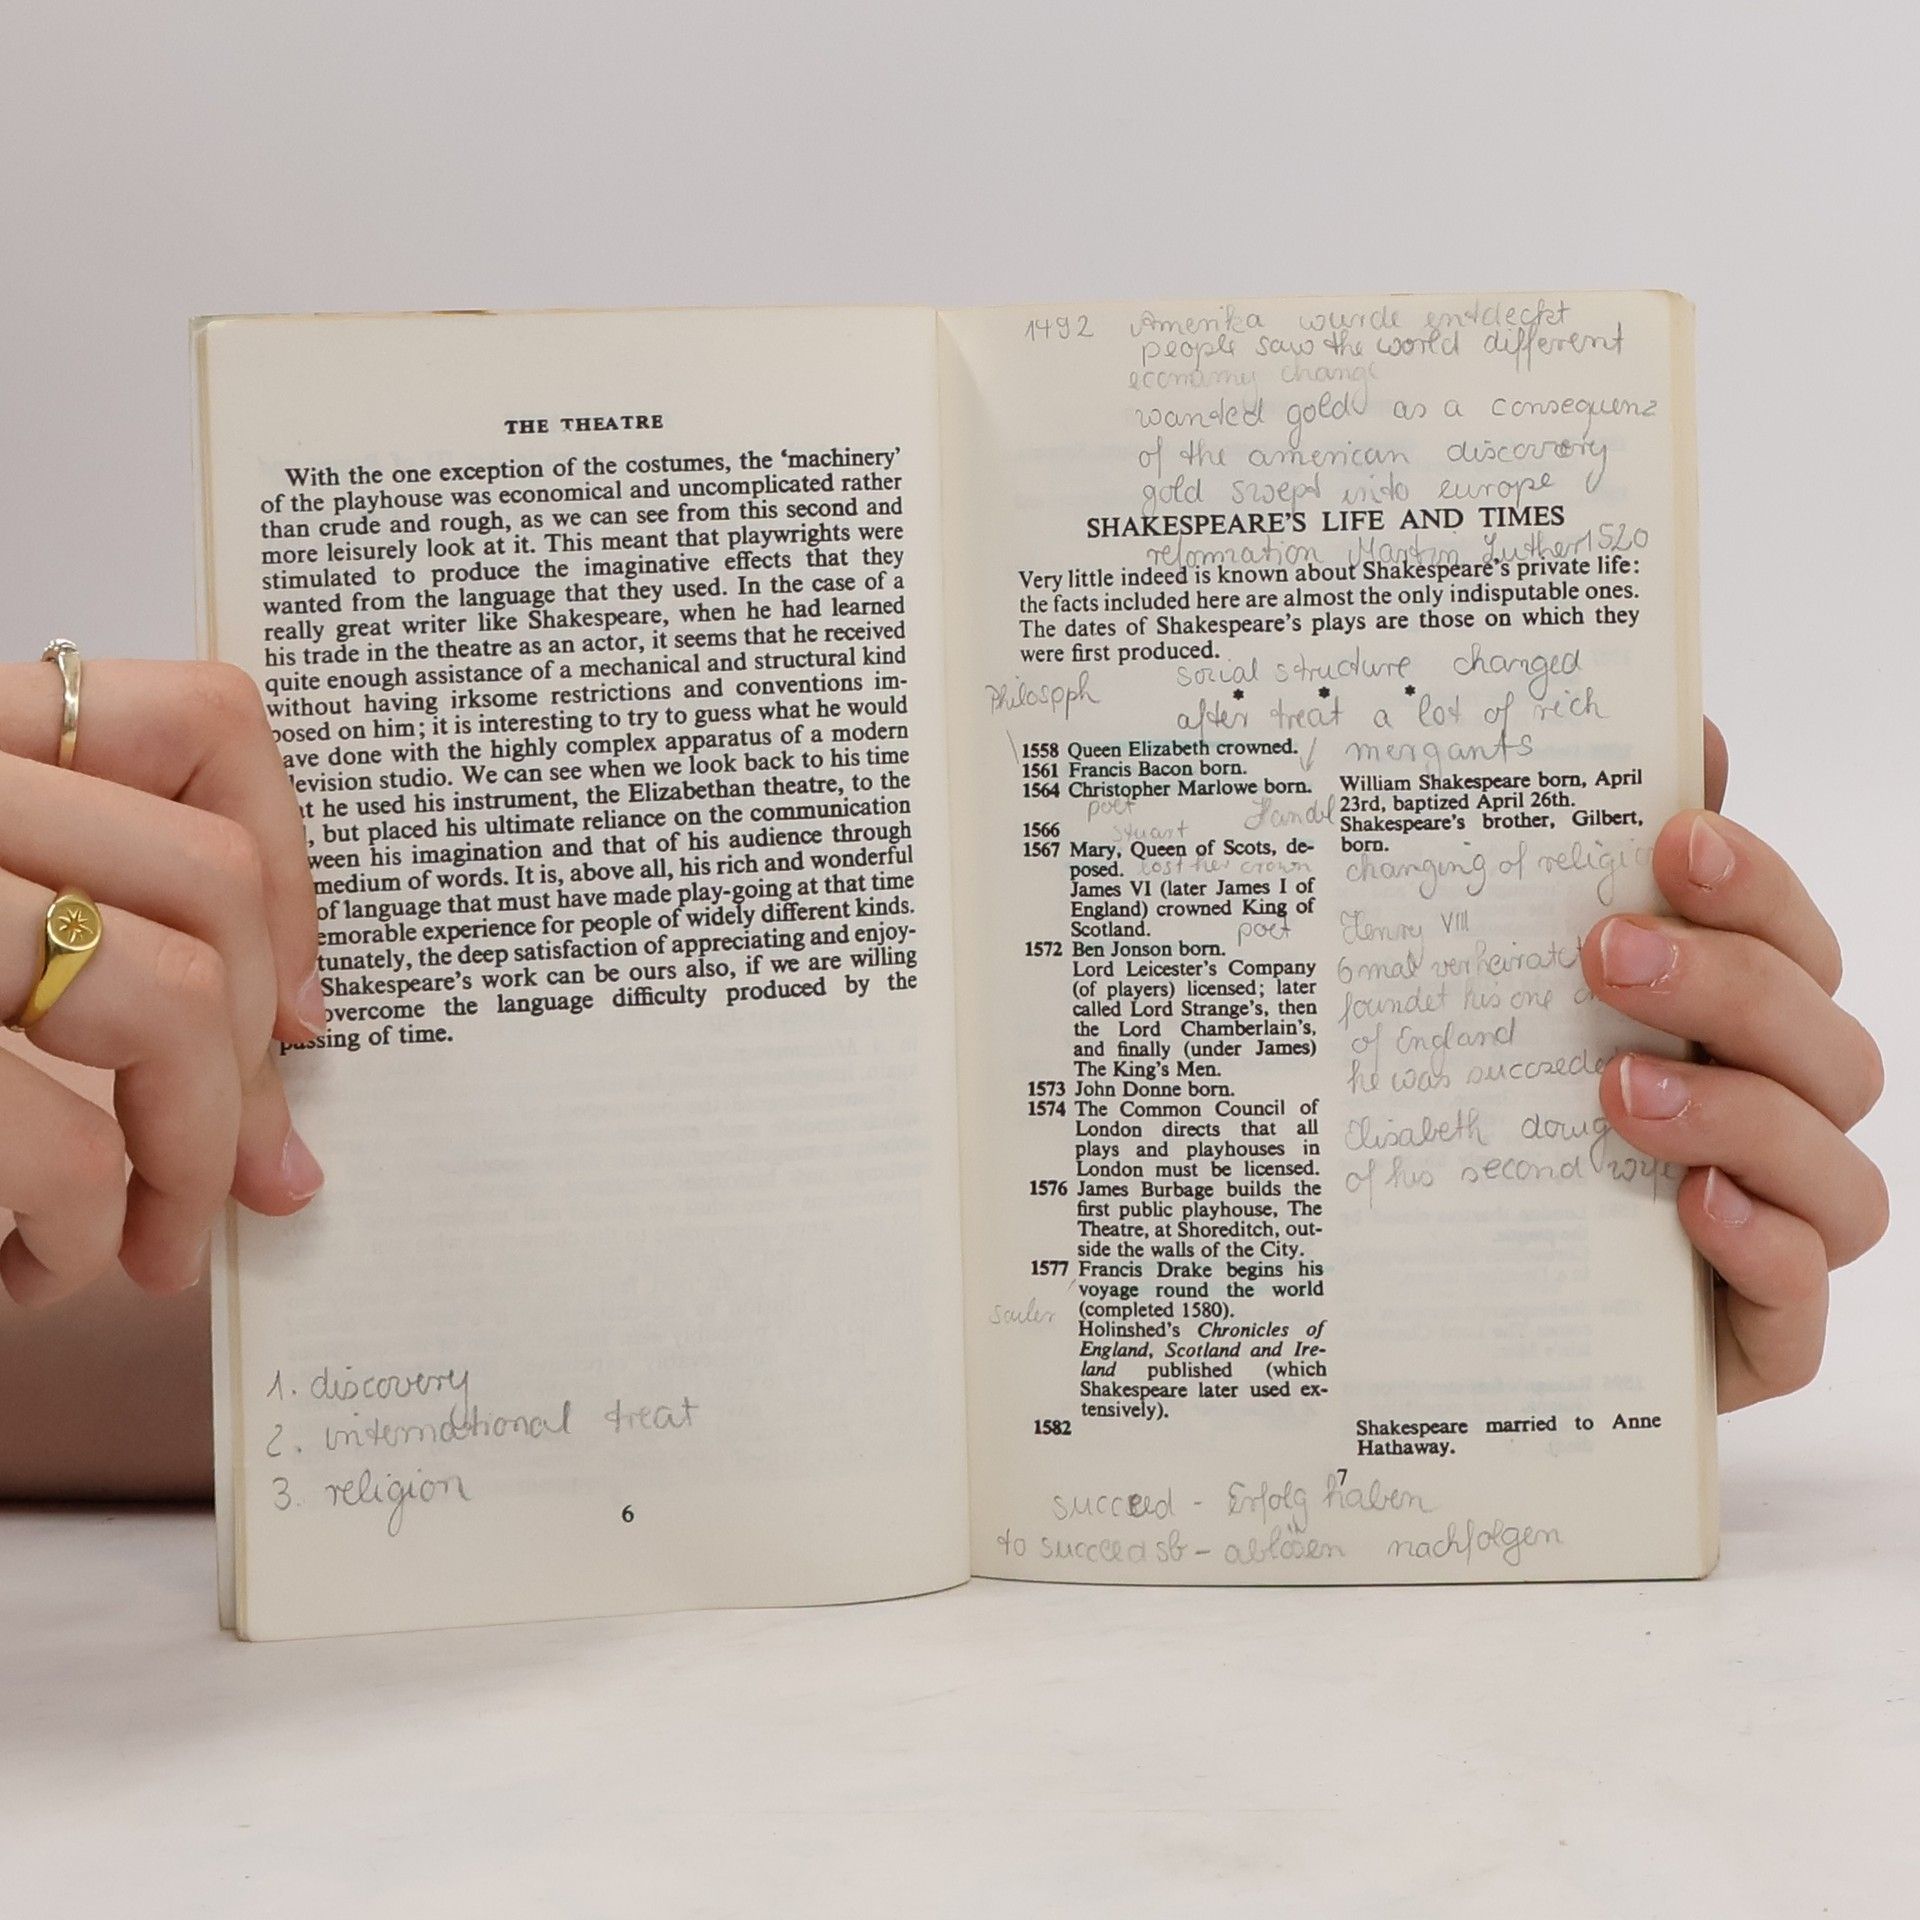 THE THEATRE
With the one exception of the costumes, the ‘machinery’
of the playhouse was economical and uncomplicated rather
than crude and rough, as we can see from this second and
more leisurely look at it. This meant that playwrights were
stimulated to produce the imaginative effects that they
wanted from the language that they used. In the case of a
really great writer like Shakespeare, when he had learned
his trade in the theatre as an actor, it seems that he received
quite enough assistance of a mechanical and structural kind
without having irksome restrictions and conventions im-
posed on him; it is interesting to try to guess what he would
ave done with the highly complex apparatus of a modern
levision studio. We can see when we look back to his time
at he used his instrument, the Elizabethan theatre, to the
, but placed his ultimate reliance on the communication
ween his imagination and that of his audience through
medium of words. It is, above all, his rich and wonderful
of language that must have made play-going at that time
emorable experience for people of widely different kinds.
tunately, the deep satisfaction of appreciating and enjoy-
Shakespeare’s work can be ours also, if we are willing
overcome the language difficulty produced by the
passing of time.
1. discovery
2. international treat
3. religion
6
1492 Amerika wurde entdeckt
people saw the world different
economy change
wanted gold as a consequenz
of the american discovery
gold swept into europe
SHAKESPEARE’S LIFE AND TIMES
reformation Martin Luther 1520
Very little indeed is known about Shakespeare’s private life:
the facts included here are almost the only indisputable ones.
The dates of Shakespeare’s plays are those on which they
were first produced.
social structure changed
Philosoph
* * *
after treat a lot of rich
mergants
1558 Queen Elizabeth crowned.
1561 Francis Bacon born.
1564 Christopher Marlowe born.
William Shakespeare born, April
23rd, baptized April 26th.
poet Handel
1566
Shakespeare’s brother, Gilbert,
born.
Stuart
1567 Mary, Queen of Scots, de-
posed. lost her crown
James VI (later James I of
England) crowned King of
Scotland.
poet
1572 Ben Jonson born.
Lord Leicester’s Company
(of players) licensed; later
called Lord Strange’s, then
the Lord Chamberlain’s,
and finally (under James)
The King’s Men.
1573 John Donne born.
1574 The Common Council of
London directs that all
plays and playhouses in
London must be licensed.
1576 James Burbage builds the
first public playhouse, The
Theatre, at Shoreditch, out-
side the walls of the City.
1577 Francis Drake begins his
voyage round the world
(completed 1580).
Holinshed’s Chronicles of
England, Scotland and Ire-
land published (which
Shakespeare later used ex-
tensively).
changing of religio
Henry VIII
6 mal verheiratet
foundet his one
of England
he was succeede
Elisabeth doug
of his second wife
1582
Shakespeare married to Anne
Hathaway.
7
succeed - Erfolg haben
to succeed sb - ablösen nachfolgen